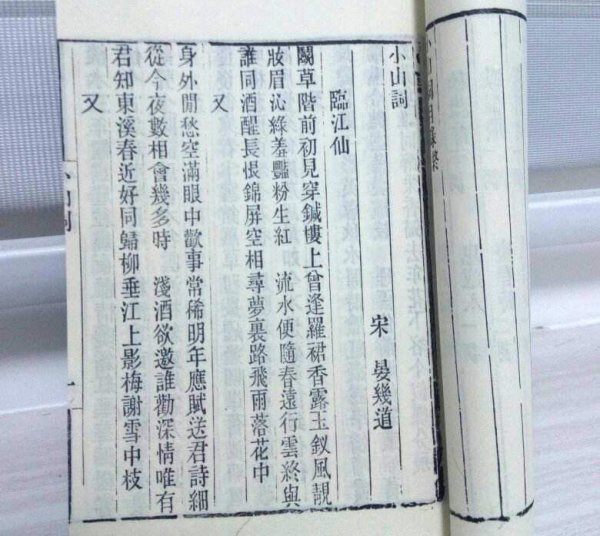 小山詞
宋　晏幾道
臨江仙
鬭草階前初見穿鍼樓上曾逢羅裙香露玉釵風靚
妝眉沁綠羞豔粉生紅　流水便隨春遠行雲終與
誰同酒醒長恨錦屏空相尋夢裏路飛雨落花中
又
身外閒愁空滿眼中歡事常稀明年應賦送君詩細
從今夜數相會幾多時　淺酒欲邀誰勸深情唯有
君知東溪春近好同歸柳垂江上影梅謝雪中枝
又